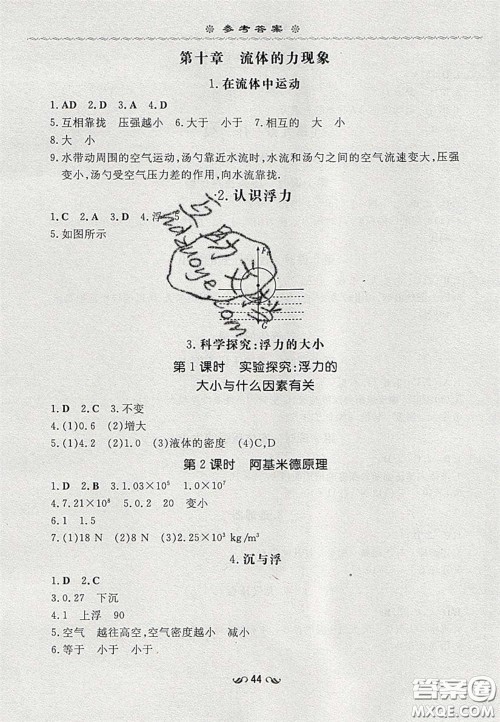 参考答案
第十章 流体的力现象
1.在流体中运动
1.AD 2.D 3.A 4.D
5.互相靠拢 压强越小 6.大于 小于 7.相互的 大
8.大 小
9.水带动周围的空气运动,汤勺靠近水流时,水流和汤勺之间的空气流速变大,压强
变小,汤勺受空气压力差的作用,向水流靠拢.
2.认识浮力
1.C 2.A 3.A 4.浮 5
5.如图所示
G
3.科学探究:浮力的大小
第1课时 实验探究:浮力的
大小与什么因素有关
1.D 2.C 3.不变
4.(1)0.6 (2)增大
5.(1)4.2 (2)1.0 (3)液体的密度 (4)C,D
第2课时 阿基米德原理
1.D 2.B 3.1.03×10⁵ 1.0×10⁷
4.7.21×10⁸ 5.0.2 20 变小
6.1 1.5
7.(1)18 N (2)8 N (3)2.25×10³ kg/m³
4.沉与浮
1.D 2.C
3.0.27 下沉
4.1 上浮 90
5.空气 越往高空,空气密度越小 减小
6.等于 小于 小于
44
互助文库
hazuoye.com
答案圈
MXQE.COM